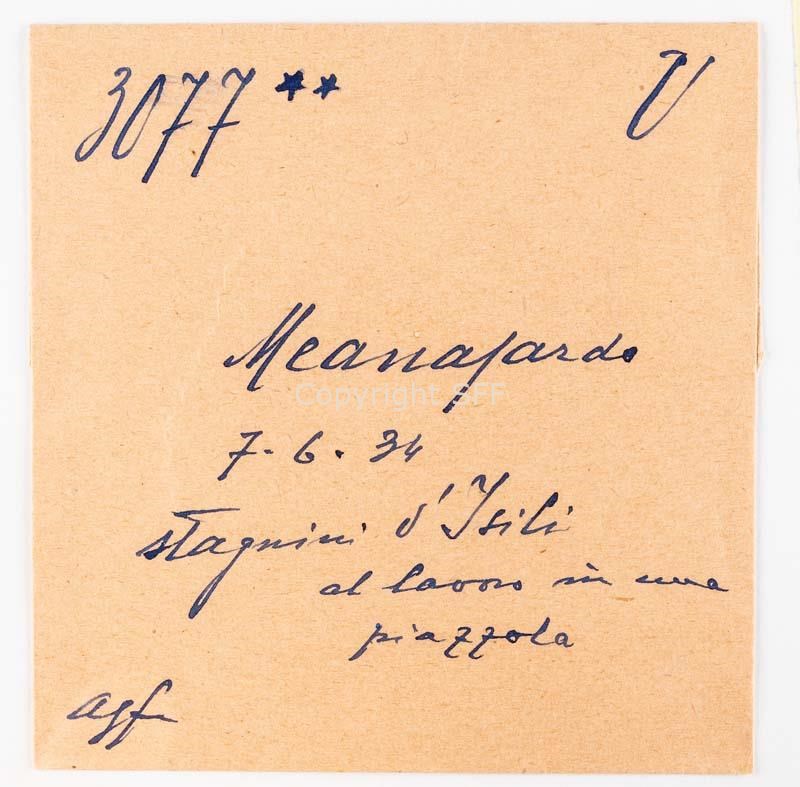 3077 ** V
Meanasardo
Copyright SFF
7-6.34
stagnini d'Isili
al lavoro in una
piazzola
agfa